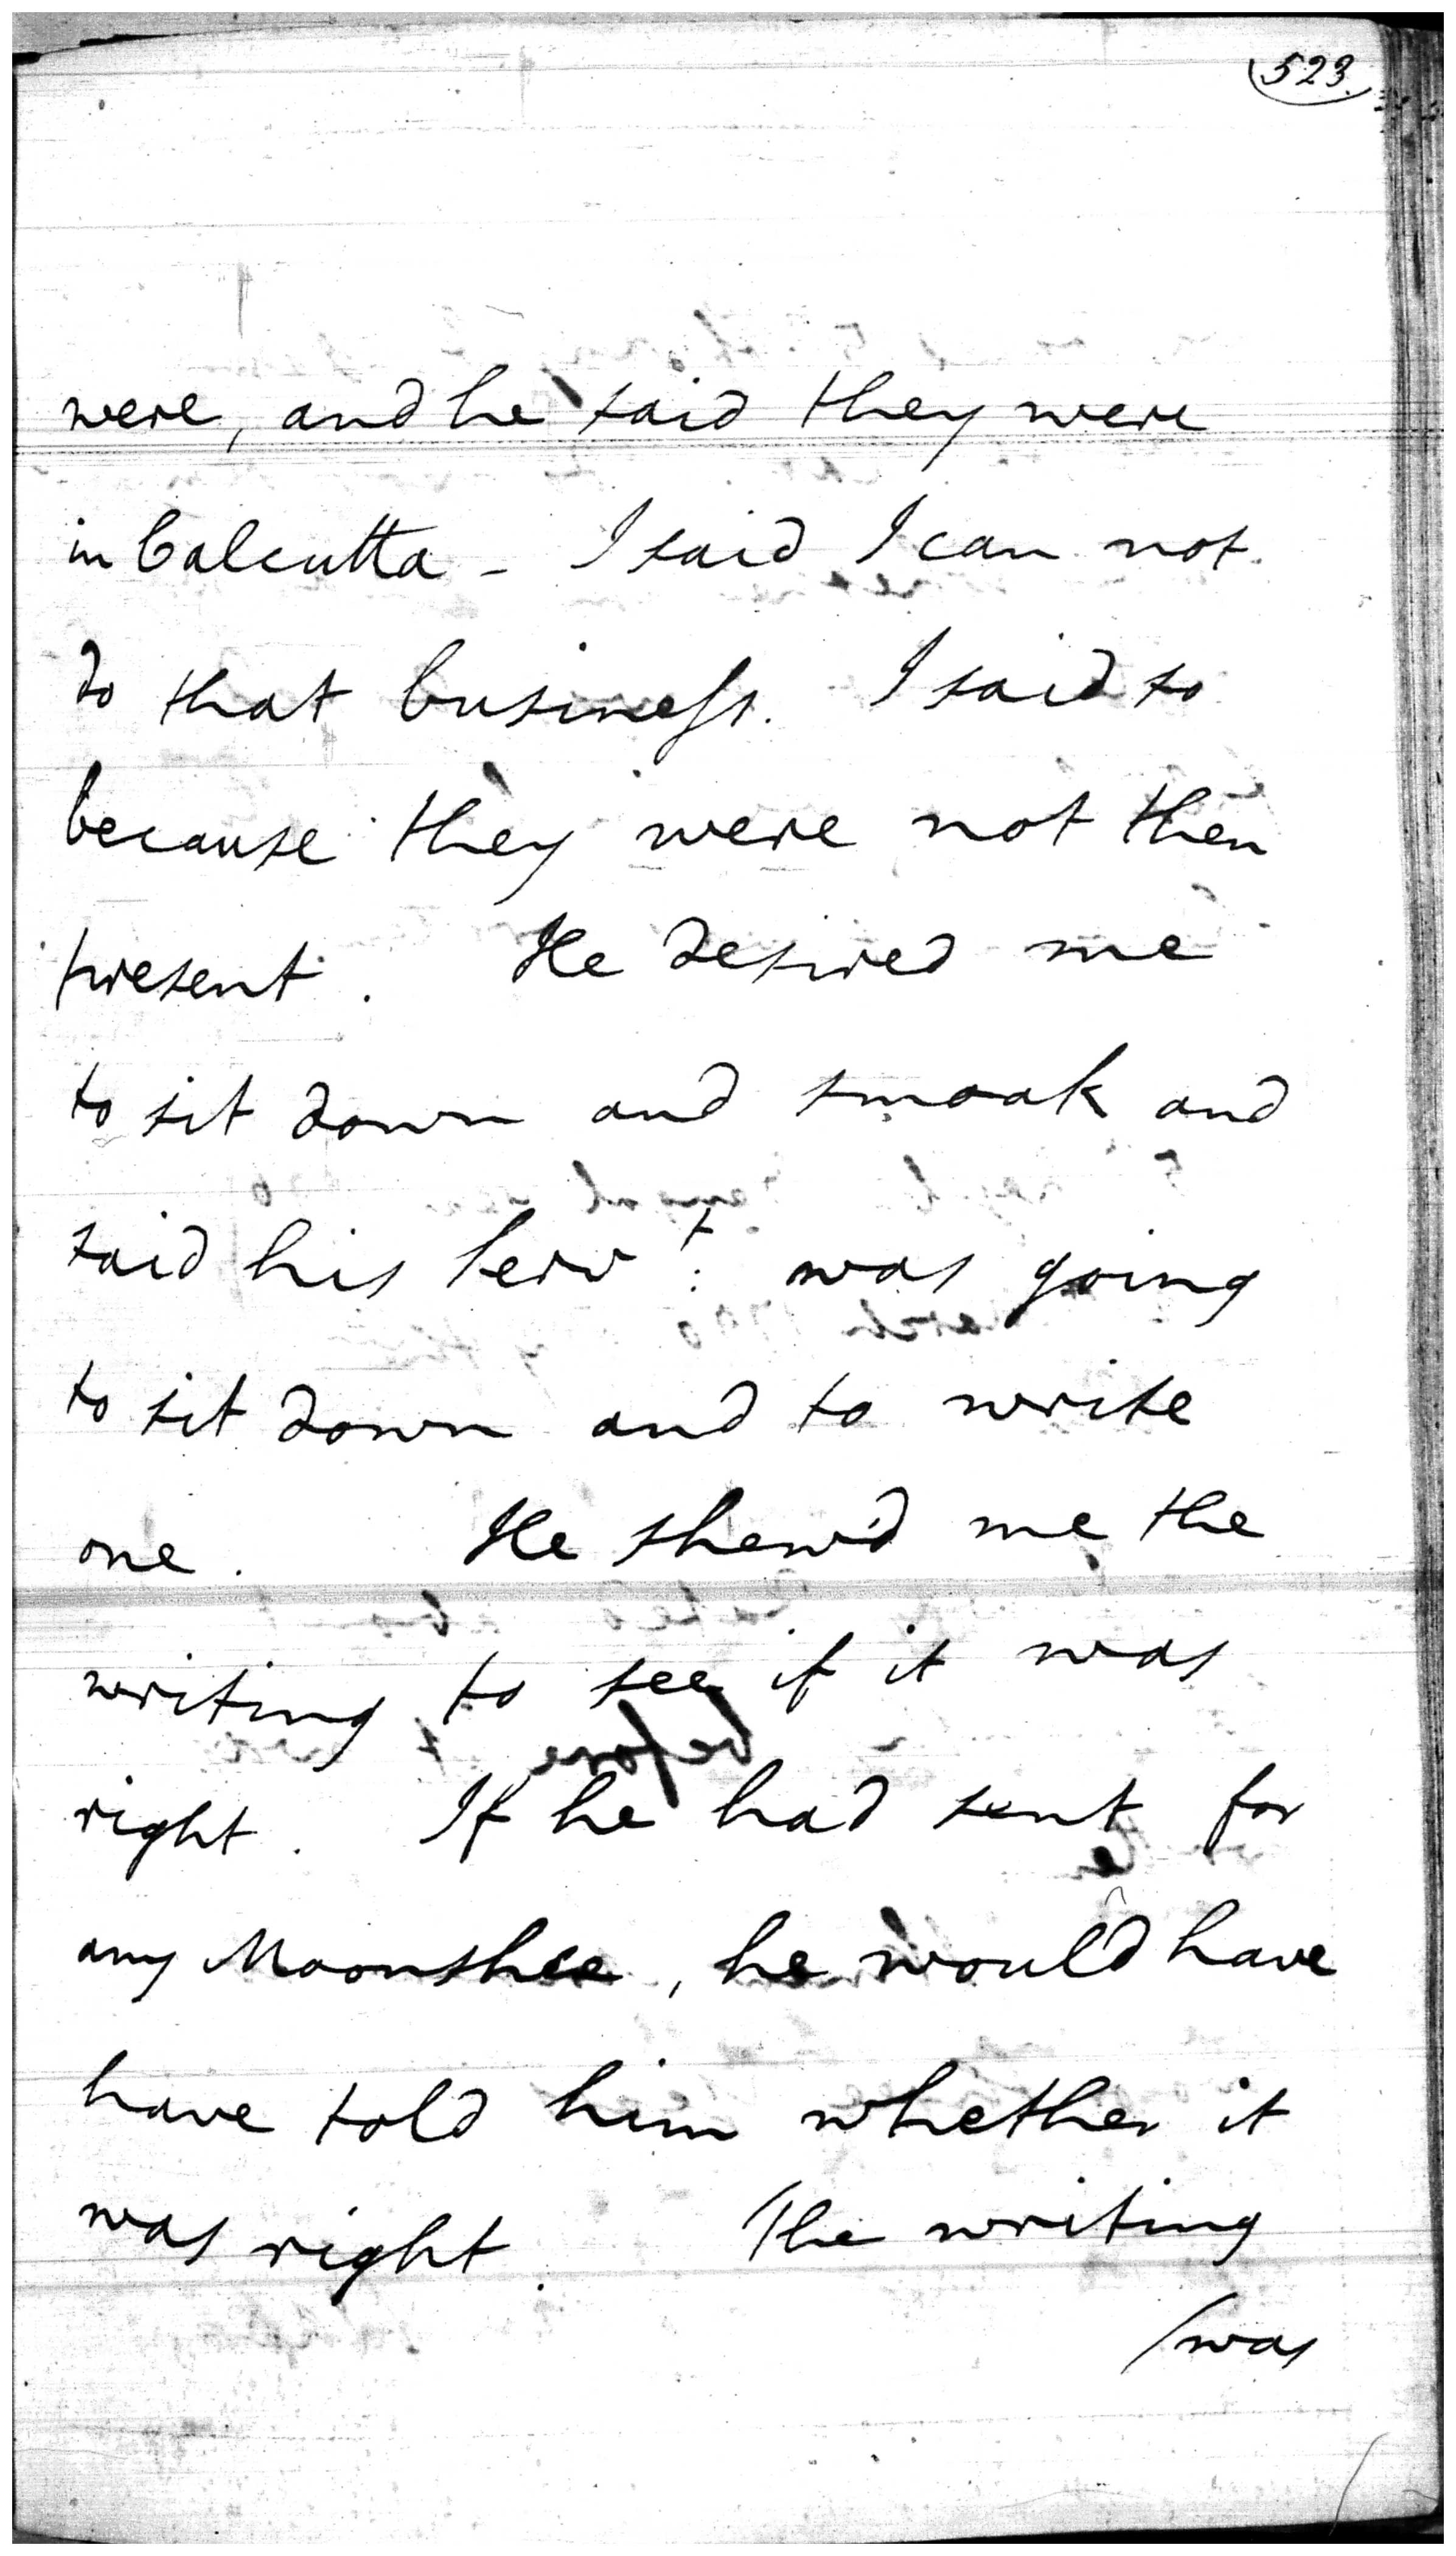 523.
were, and he said they were
in Calcutta - I said I can not
do that business. I said so
because they were not then
present. He desired me
to sit down and smoak and
said his serv.t was going
to sit down and to write
one. He shew'd me the
writing to see if it was
right. If he had sent for
any Moonshee, he would have
have told him whether it
was right. The writing
/was